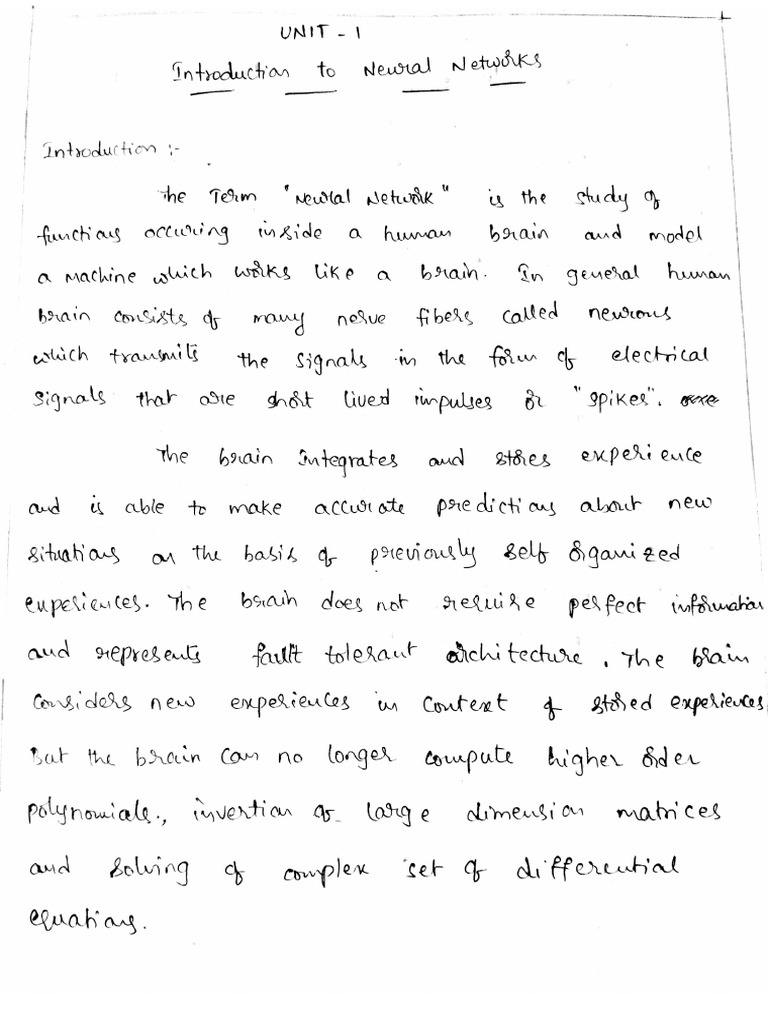 UNIT - 1
Introduction to Neural Networks
Introduction :-
The Term "Neural Network" is the study of
functions occuring inside a human brain and model
a machine which works like a brain. In general human
brain consists of many nerve fibers called neurons
which transmits the signals in the form of electrical
signals that are short lived impulses or "spikes".
The brain Integrates and stores experience
and is able to make accurate predictions about new
situations on the basis of previously self organized
experiences. The brain does not require perfect information
and represents fault tolerant architecture. The brain
considers new experiences in context of stored experiences
But the brain can no longer compute higher order
polynomials., invertion of large dimension matrices
and solving of complex set of differential
equations.